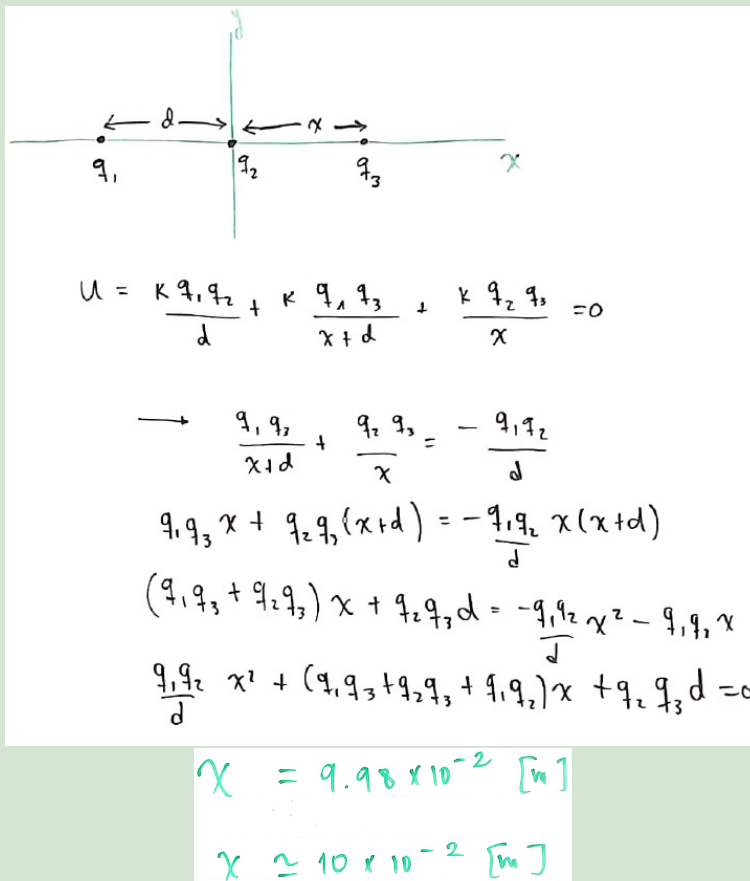 y
← d → ← x →
q₁ q₂ q₃ x
U = K q₁q₂/d + K q₁q₃/(x+d) + K q₂q₃/x =0
→ q₁q₃/(x+d) + q₂q₃/x = - q₁q₂/d
q₁q₃ x + q₂q₃(x+d) = - q₁q₂/d x(x+d)
(q₁q₃ + q₂q₃) x + q₂q₃d = -q₁q₂/d x² - q₁q₂ x
q₁q₂/d x² + (q₁q₃+q₂q₃ + q₁q₂)x + q₂q₃d =0
x = 9.98 x 10⁻² [m]
x ≃ 10 x 10⁻² [m]